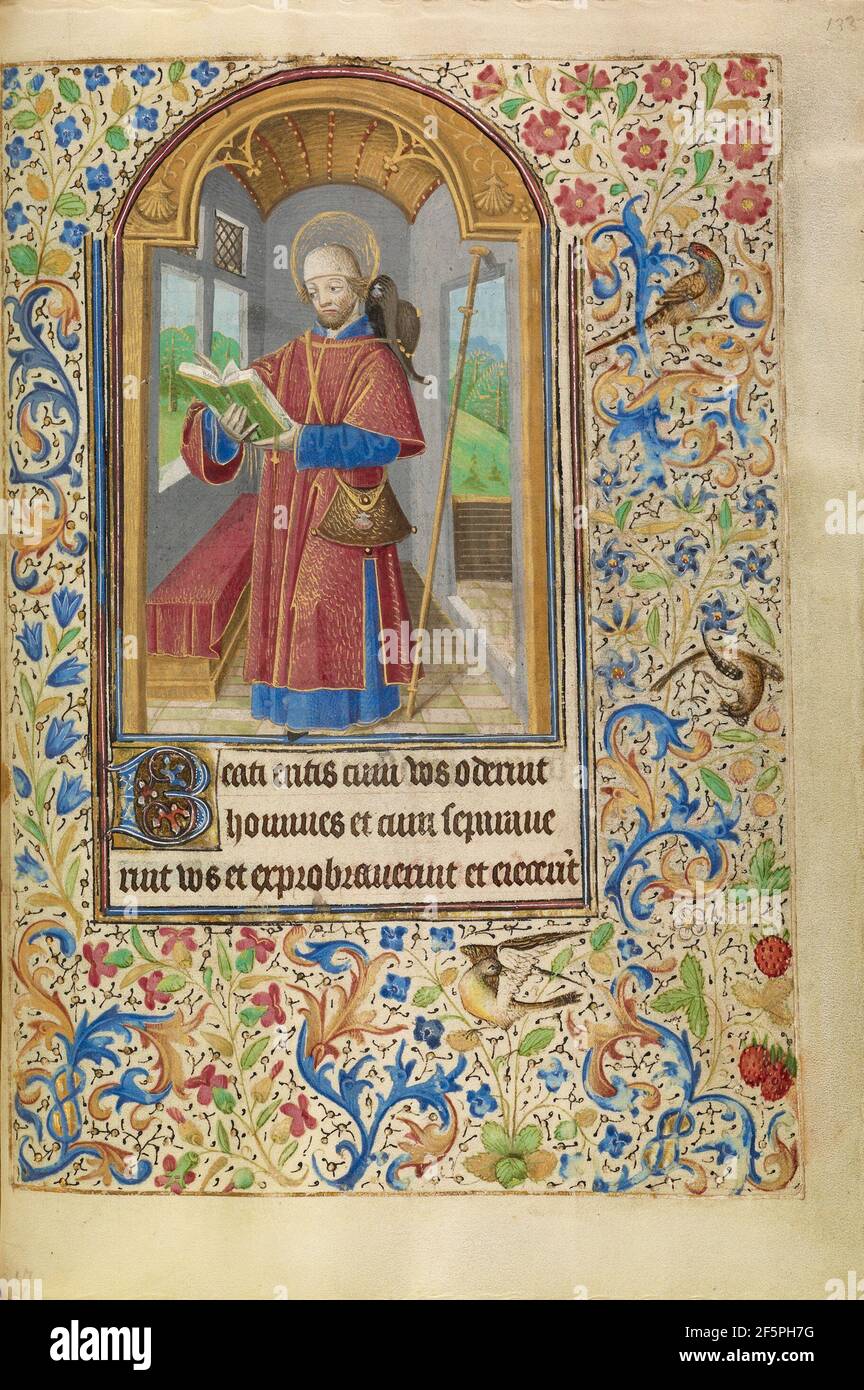 133
Beati eritis cum vos oderint
homines et cum separave
rint vos et exprobraverint et eiecerīt
alamy
alamy
Image ID: 2F5PH7G
www.alamy.com